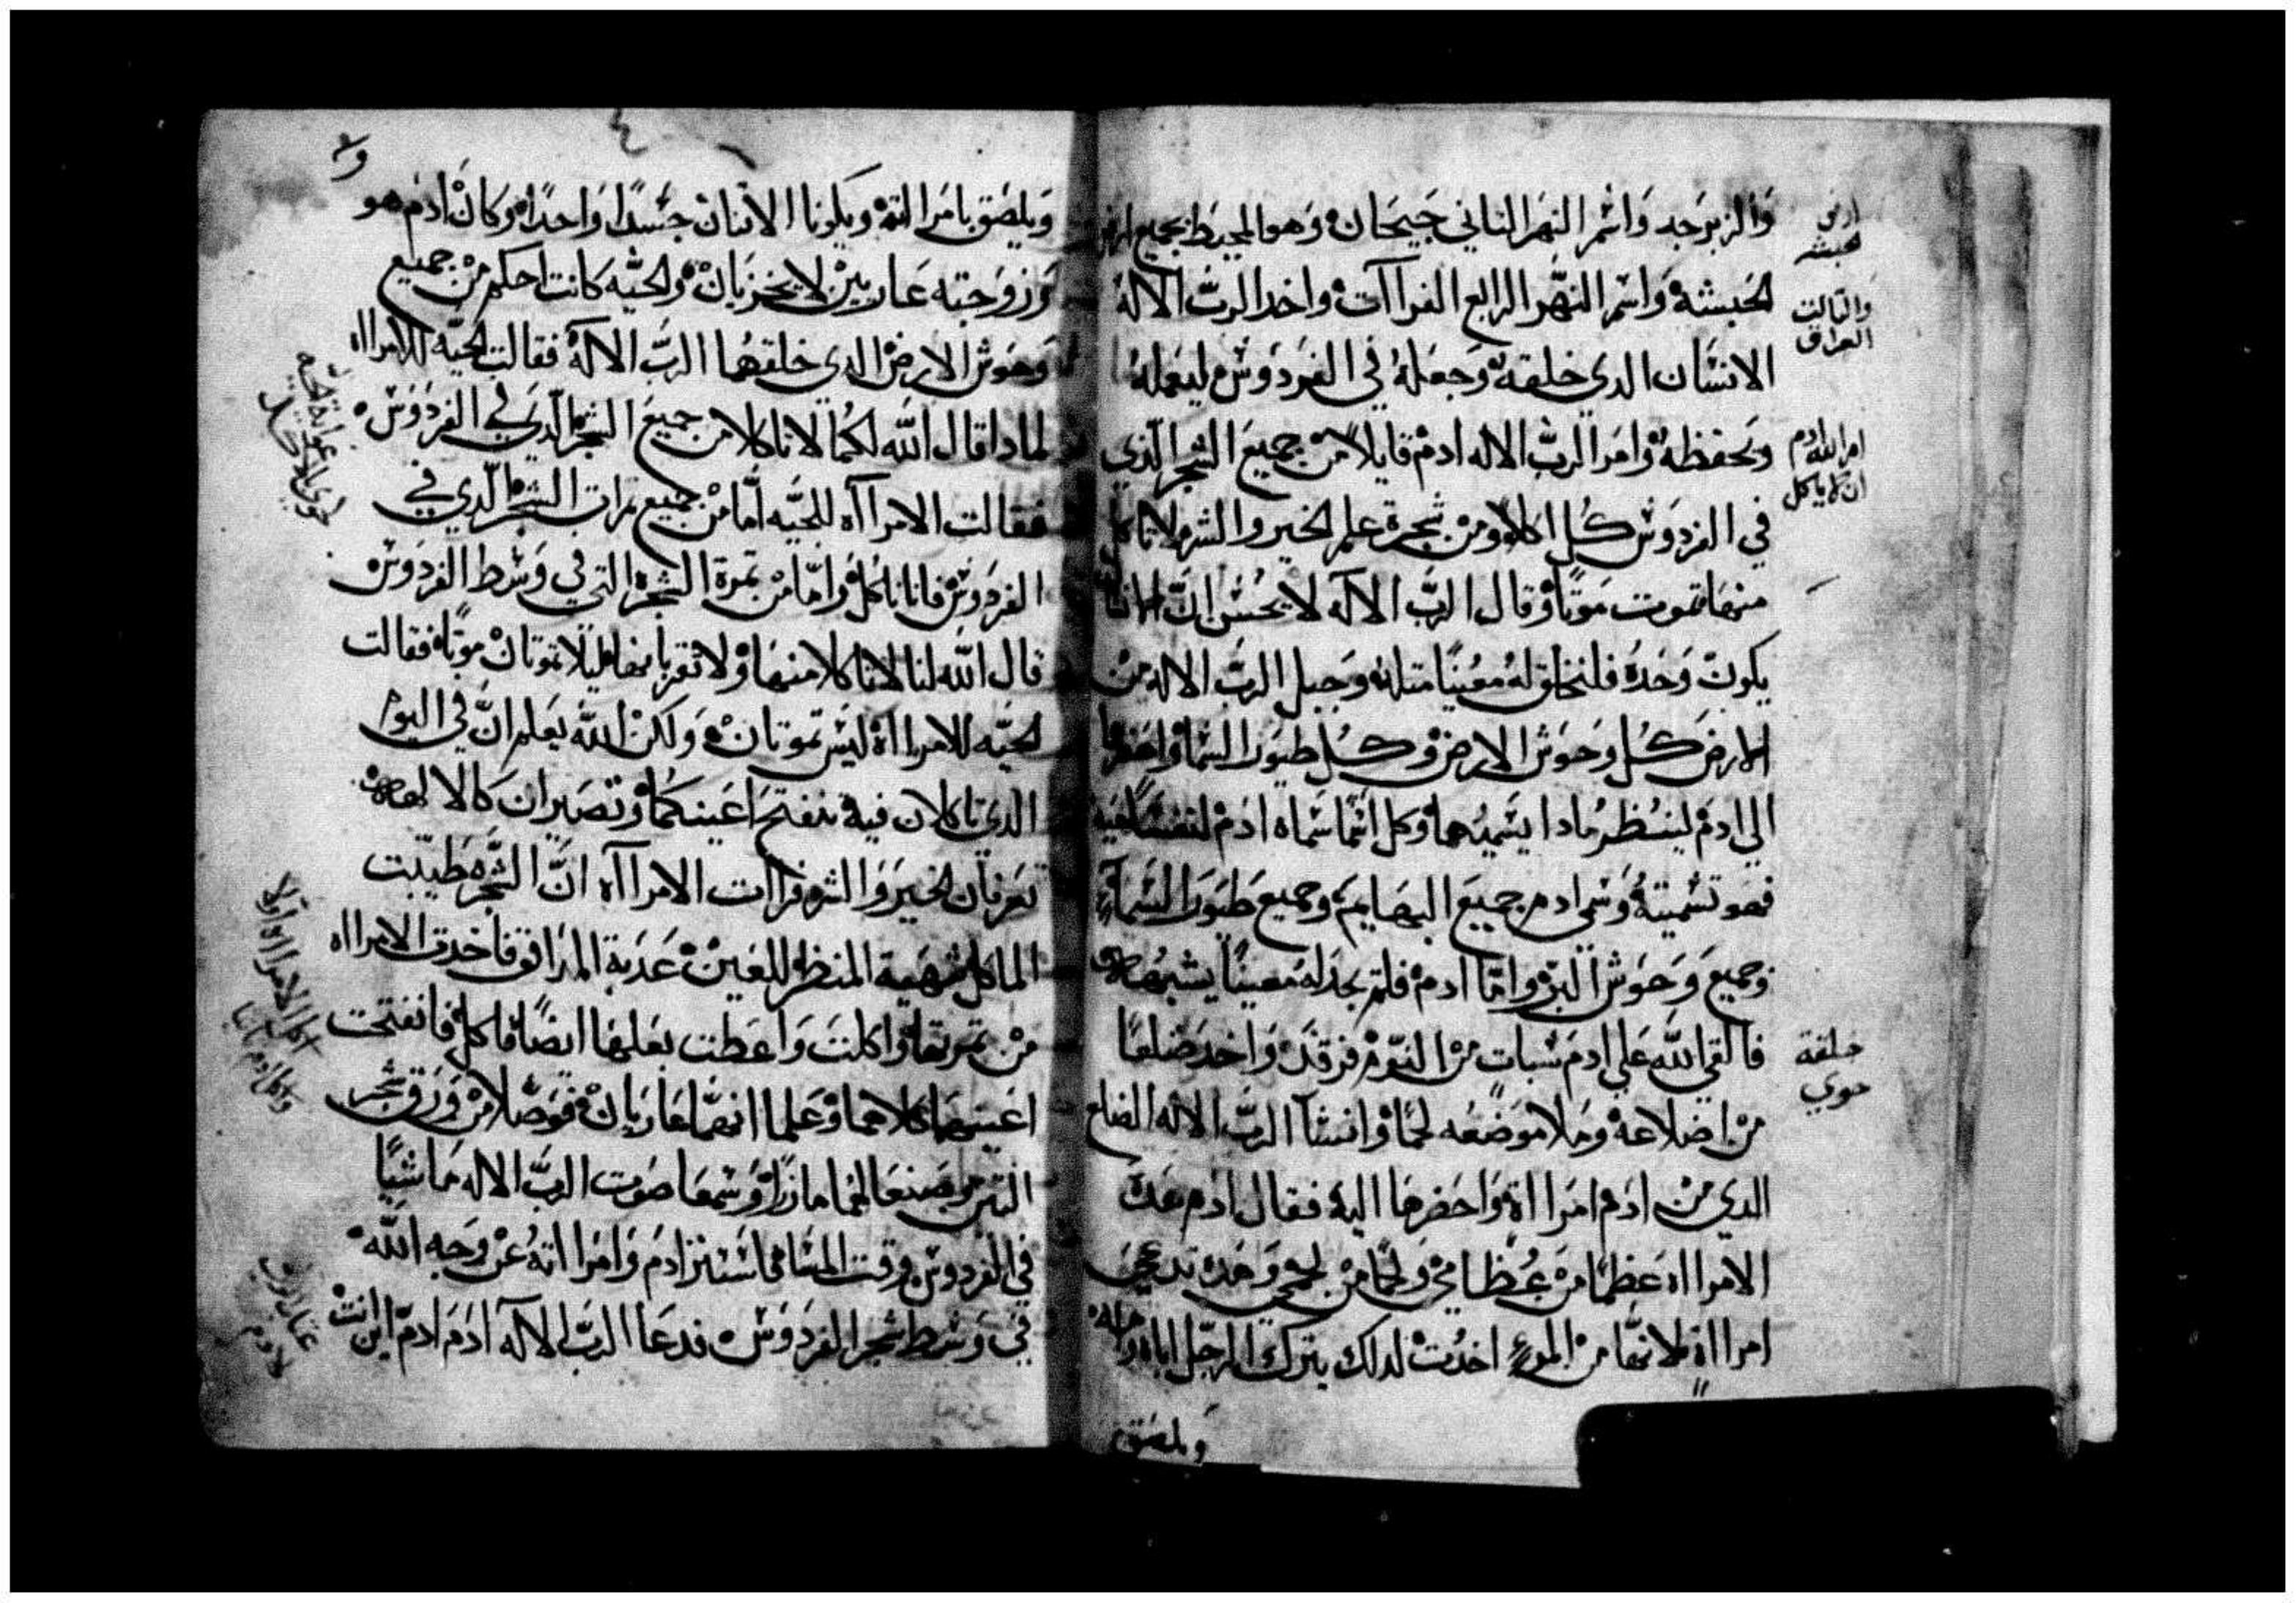 والزبرجد واسم النهر التاني جيحان وهو المحيط بجميع ارض
الحبشة واسم النهر الرابع الفراآت واخد الرب الاله
الانسان الدي خلقه وجعله في الفردوس ليعمله
ويحفظه وامر الرب الاله ادم قايلا من جميع الشجر الذي
في الفردوس كل اكلا ومن شجرة علم الخير والشر لا تاكل
منها تموت موتا وقال الرب الاله لا يحسن ان
يكون وحده فلنخلق له معينا متله وجبل الرب الاله من
الارض كل وحوش الارض وكل طيور السما واحضرها
الي ادم لينظر مادا يسميها وكل اسما سماه ادم لنفسا حية
فهو تسميته وسمي ادم جميع البهايم وجميع طيور السماء
وجميع وحوش البر واما ادم فلم يجد له معينا يشبهه
فالقي الله علي ادم سبات من النوم فرقد واخد ضلعا
من اضلاعه وملا موضعه لحما وانشا الرب الاله الضلع
الدي من ادم امرااة واحضرها اليه فقال ادم هده
الامرااه عظما من عظامي ولحما من لحمي وهده تدعي
امرااة لانها من المرء اخدت لدلك يترك الرجل اباه وامه
ويلصق
ارض
الحبشه
والتالت
العراق
امر الله ادم
ان لا ياكل
خلقة
حوي
ويلصق بامراته ويكونا الاتنان جسدا واحدا وكان ادم هو
وزوجته عاريين لا يخزيان والحيه كانت احكم من جميع
وحوش الارض الدي خلقهما الرب الاله فقالت الحيه للامرااه
لمادا قال الله لكما لا تاكلا من جميع الشجر الدي في الفردوس
فقالت الامرااه للحيه اما من جميع تمرات الشجر الدي في
الفردوس فانا ناكل واما من تمرة الشجره التي في وسط الفردوس
قال الله لنا لا تاكلا منها ولا تقربا منها ليلا تموتان موتا فقالت
الحيه للامرااة ليس تموتان ولكن الله يعلم ان في اليوم
الدي تاكلان فيه تنفتح اعينكما وتصيران كالالهه
تعرفان الخير والشر فراات الامرااه ان الشجره طيبت
الماكل شهية المنظر للعين عدبة المداق فاخدت الامرااه
من تمرتها واكلت واعطت بعلها ايضا فاكل فانفتحت
اعينهما كلاهما وعلما انهما عاريان فوصلا من ورق شجر
التين وصنعا لهما مازرا وسمعا صوت الرب الاله ماشيا
في الفردوس وقت المسا فاستتر ادم وامرااته عن وجه الله
في وسط شجر الفردوس فدعا الرب الاله ادم ادم اين انت
اكل الامرااه اولا
واكل ادم تانيا